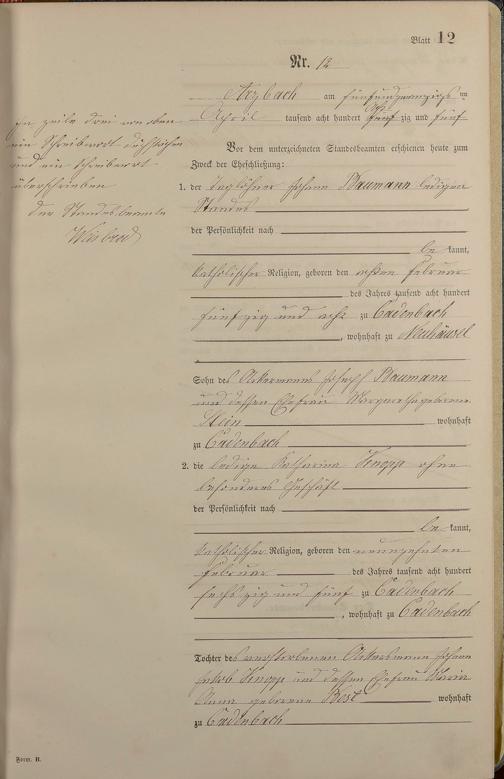 Blatt 12
Nr. 12
Arzbach am fünfundzwanzigsten
April tausend acht hundert acht zig und fünf
Vor dem unterzeichneten Standesbeamten erschienen heute zum
Zweck der Eheschließung:
1. der Taglöhner Johann Baumann ledigen
Standes
der Persönlichkeit nach
be kannt,
katholischer Religion, geboren den achten Februar
des Jahres tausend acht hundert
fünfzig und acht zu Cadenbach
, wohnhaft zu Neuhäusel
Sohn des Ackermanns Joseph Baumann
und dessen Ehefrau Margaretha geborene
Stein wohnhaft
zu Cadenbach
2. die ledige Katharina Knopp ohne
besonderes Geschäft
der Persönlichkeit nach
be kannt,
katholischer Religion, geboren den neunzehnten
Februar des Jahres tausend acht hundert
sechszig und fünf zu Cadenbach
, wohnhaft zu Cadenbach
Tochter des verstorbenen Ackersmann Johann
Jakob Knopp und dessen Ehefrau Maria
Anna geborene Best wohnhaft
zu Cadenbach
In Zeile drei von oben
ein Schreibwort durchstrichen
und ein Schreibwort
überschrieben
der Standesbeamte
Form. B.